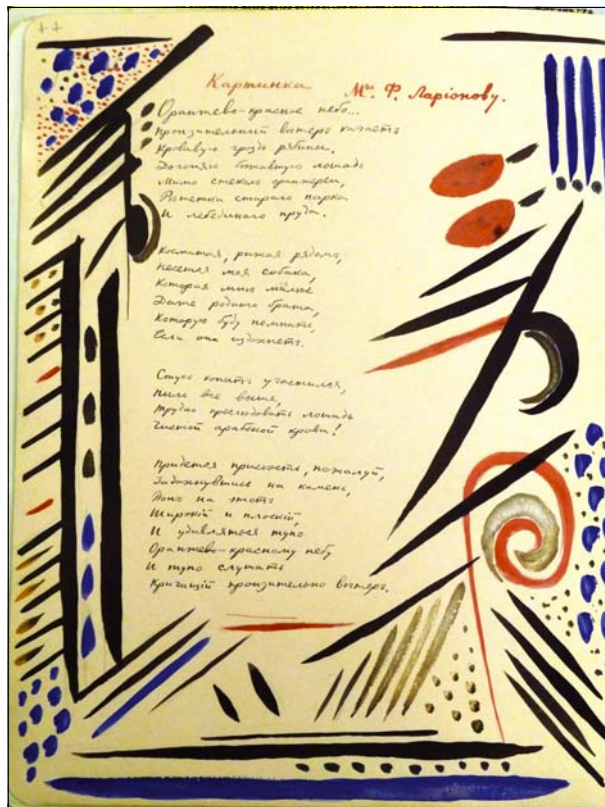 Картинка М. Ф. Ларіонову.
Оранжево-красное небо...
Пронзительный вѣтеръ качаетъ
Кровавую гроздь рябины.
Догоняю бѣжавшую лошадь
Мимо стеколъ оранжереи,
Рѣшетки стараго парка
И лебединаго пруда.
Косматая, рыжая рядомъ,
Несется моя собака,
Которая мнѣ милѣе
Даже родного брата,
Которую буду помнить,
Если она издохнетъ.
Стукъ копытъ участился,
Пыль все выше,
Трудно преслѣдовать лошадь
Чистой арабской крови!
Придется присѣсть, пожалуй,
Задохнувшись на камень,
на этотъ
Широкій и плоскій,
И удивляться тупо
Оранжево-красному небу
И тупо слушать
Кричащій пронзительно вѣтеръ.